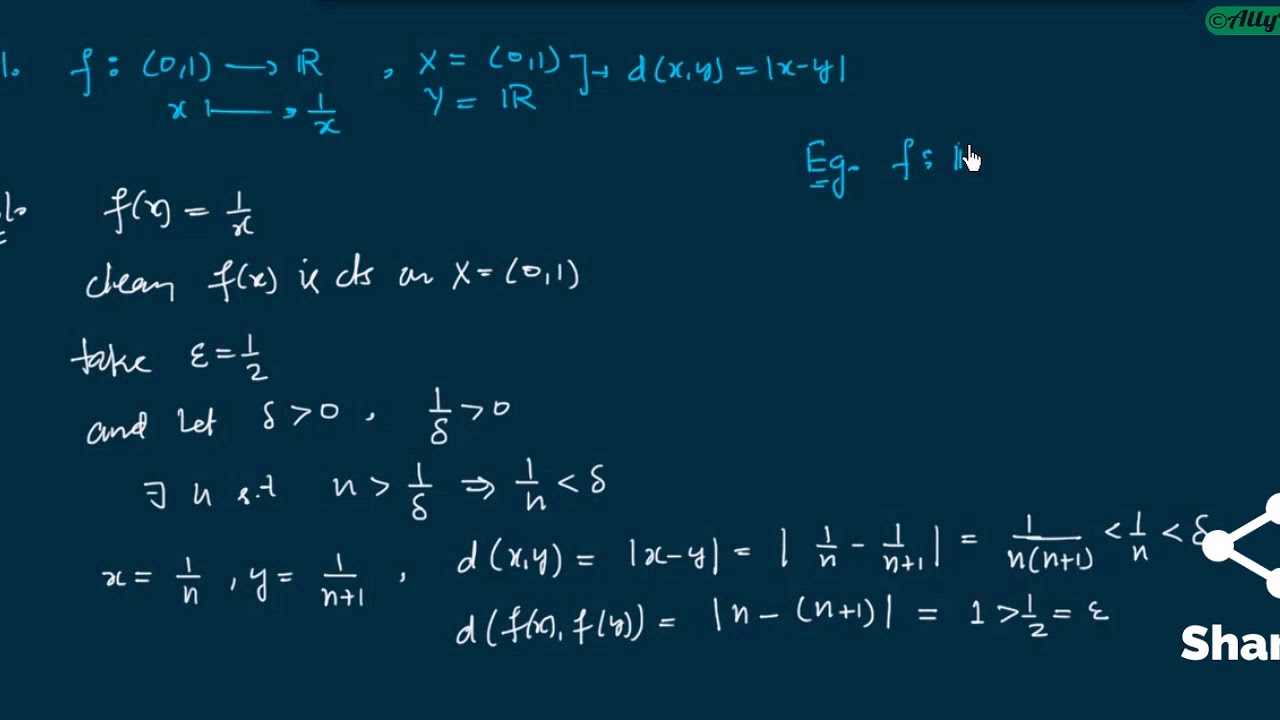 ©Ally
1. f : (0,1) ⟶ ℝ , X = (0,1) ] → d(x,y) = |x-y|
x ⟼ 1/x Y = ℝ
Eg. f :
f(x) = 1/x
clearly f(x) is cts on X = (0,1)
take ε = 1/2
and let δ > 0 , 1/δ > 0
∃ n s.t n > 1/δ ⇒ 1/n < δ
x = 1/n , y = 1/(n+1) , d(x,y) = |x-y| = | 1/n - 1/(n+1) | = 1/(n(n+1)) < 1/n < δ
d(f(x), f(y)) = |n - (n+1)| = 1 > 1/2 = ε
Shar